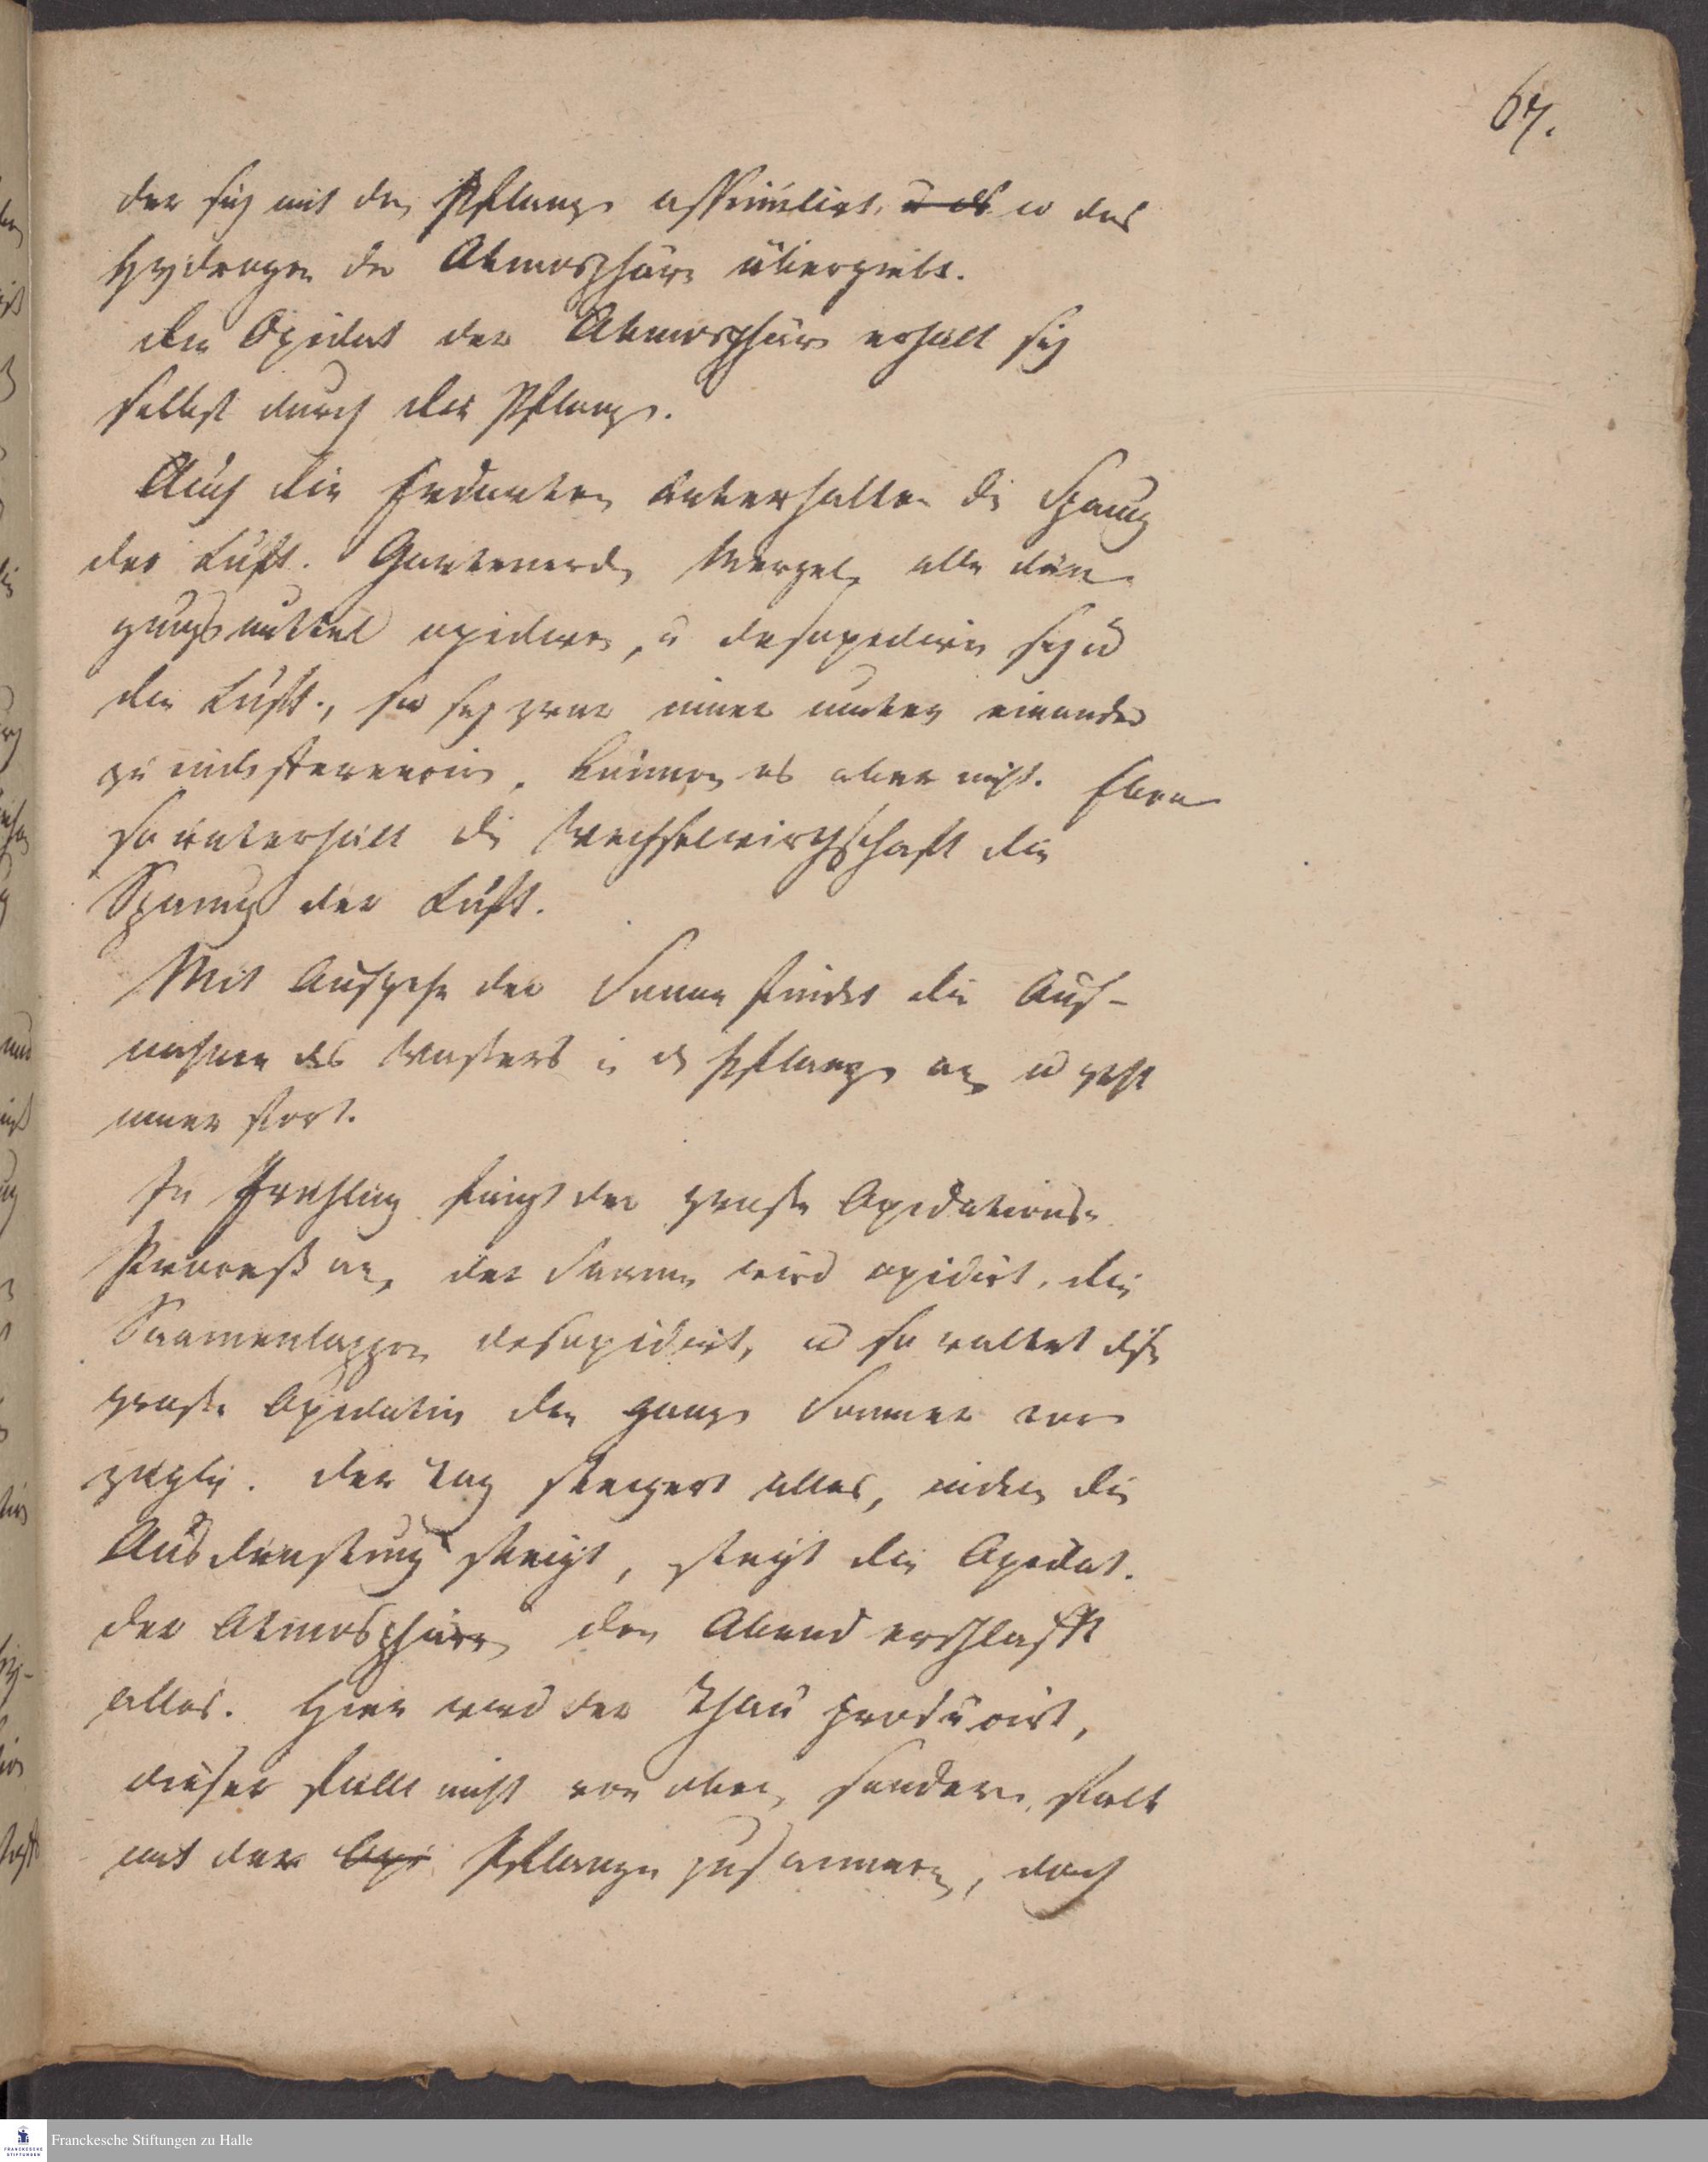 67.
der sich mit der Pflanze assimilirt, u das u das
Hydrogen der Atmosphäre übergiebt.
die Oxidat der Atmosphäre erhält sich
selbst durch die Pflanze.
Auch die Erdarten unterhalten die Spanng
der Luft. Gartenerde, Mergel, alle dün-
gungsmittel oxidiren, u desoxidiren sich u
die Luft, sie sich zwar immer unter einander
zu indifferenziren, können es aber nicht. Eben
so unterhält die Wechselwirthschaft die
Spanng der Luft.
Mit Aufgehn der Sonne findet die Auf-
nahme des Wassers in d Pflanze an u geht
immer fort.
Im Frühling fängt der große Oxidations-
Proceß an, der Saamen wird oxidirt, die
Saamenlappen desoxidirt, u so waltet diese
große Oxidation den ganze Sommer vor
züglich. der Tag steigert alles, indem die
Ausdünstung steigt, steigt die Oxidat.
der Atmosphäre, den Abend erschlafft
alles. Hier wird der Thau producirt,
dieser fällt nicht von oben, sondern fällt
mit der Oxi Pflanze zusammen, doch
Franckesche Stiftungen zu Halle
FRANCKESCHE
STIFTUNGEN